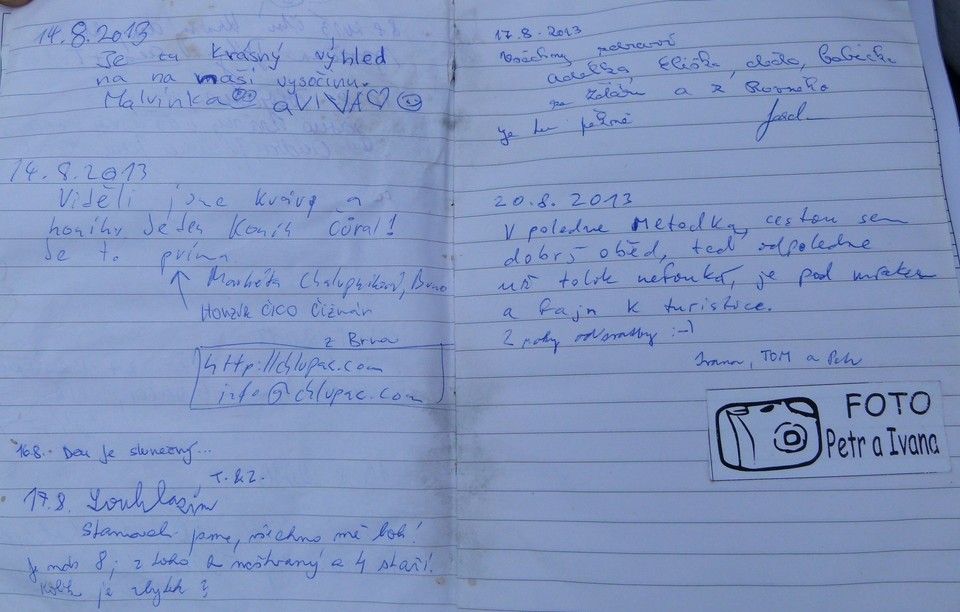 14.8.2013
Je za krásný výhled
na na naší vysočinu.
Malvínka a VIVA
14.8.2013
Viděli jsme krávy a
koníky. Jeden koník čůral!
Je to príma
Markéta Chalupníková, Brno
Honzík ČIČO Čižmár
z Brna
http://chlupac.com
info@chlupac.com
16.8. Den je slunečný...
T. & Z.
17.8. Souhlasím
Stanovali jsme, všechno mě bolí!
Je nás 8, z toho naštvaný a 4 staří!
Kolik je zbytek?
17.8.2013
Všechny zdraví
Adélka, Eliška, děda, babička
ze Žďáru a z Rovného
Je tu pěkně
20.8.2013
V poledne Metodka, cestou sem
dobrý oběd, teď odpoledne
už tolik nefouká, je pod mrakem
a fajn k turistice.
2 roky od svatby :-)
Ivana, TOM a Petr
FOTO
Petr a Ivana